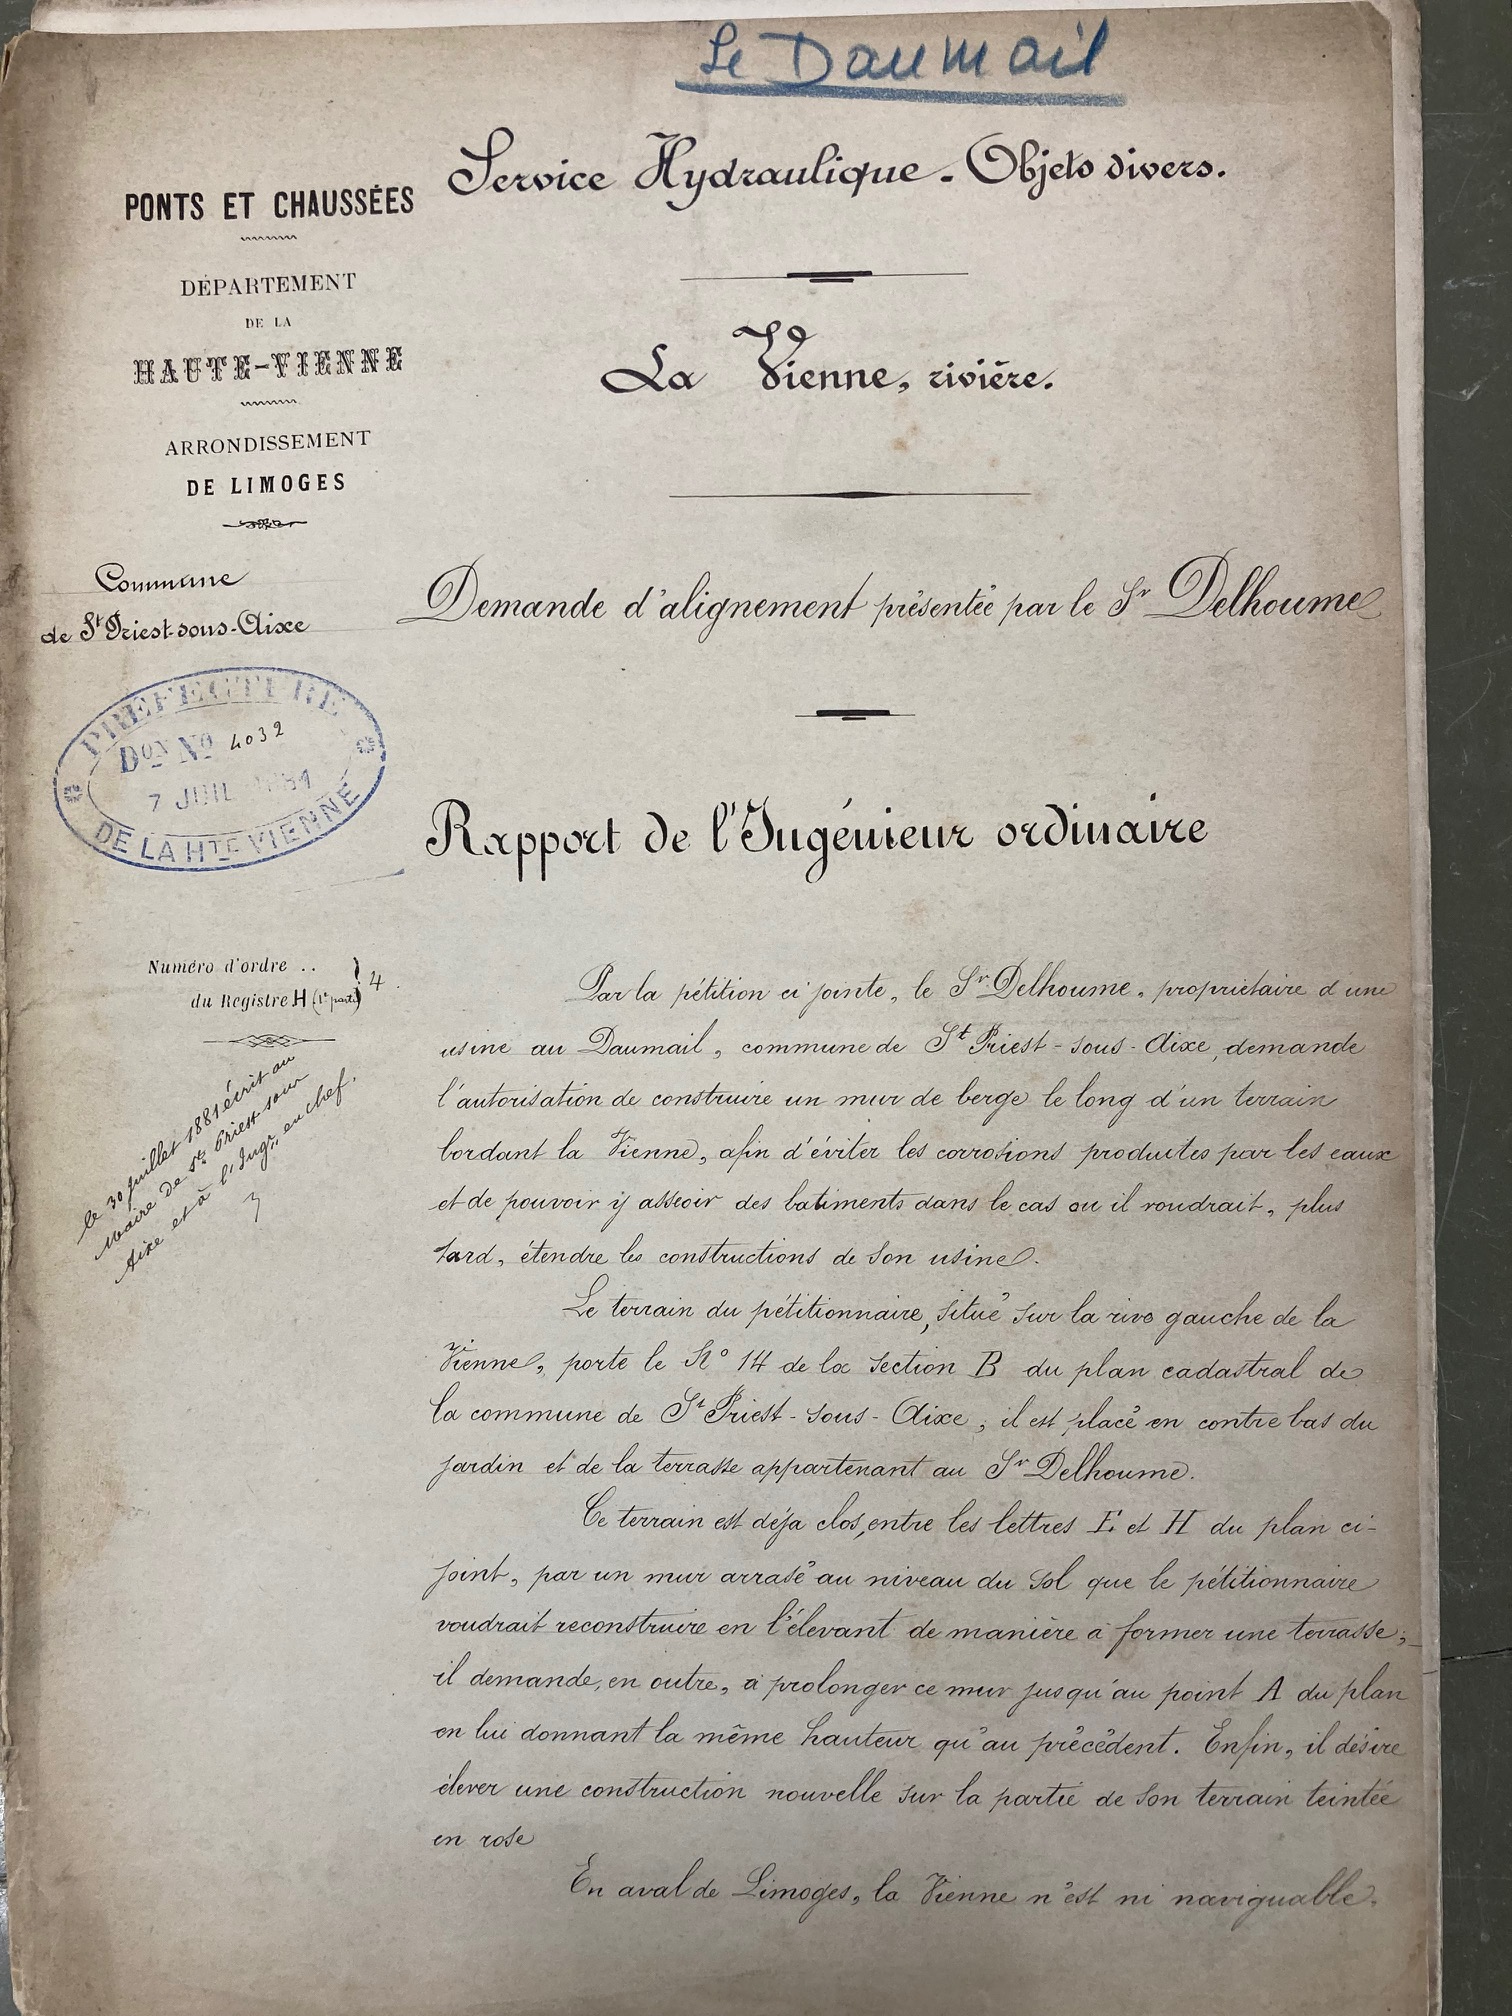 Le Daumail
Service Hydraulique - Objets divers.
PONTS ET CHAUSSÉES
DÉPARTEMENT
DE LA
HAUTE-VIENNE
ARRONDISSEMENT
DE LIMOGES
Commune
de St Priest-sous-Aixe
PREFECTURE
Don No 4032
7 JUIL 1881
DE LA HTE VIENNE
Numéro d'ordre ..
du Registre H (1e partie) 4.
le 30 juillet 1881 écrit au
Maire de St Priest-sous
Aixe et à l'Ingr. en chef.
La Vienne, rivière.
Demande d'alignement présentée par le Sr Delhoume
Rapport de l'Ingénieur ordinaire
Par la pétition ci jointe, le Sr Delhoume, propriétaire d'une
usine au Daumail, commune de St Priest-sous-Aixe, demande
l'autorisation de construire un mur de berge le long d'un terrain
bordant la Vienne, afin d'éviter les corrosions produites par les eaux
et de pouvoir y asseoir des batiments dans le cas ou il voudrait, plus
tard, étendre les constructions de son usine.
Le terrain du pétitionnaire, situé sur la rive gauche de la
Vienne, porte le No 14 de la section B du plan cadastral de
la commune de St Priest-sous-Aixe, il est placé en contre bas du
jardin et de la terrasse appartenant au Sr Delhoume.
Ce terrain est déja clos, entre les lettres E et H du plan ci-
joint, par un mur arrasé au niveau du sol que le pétitionnaire
voudrait reconstruire en l'élevant de manière à former une terrasse;
il demande, en outre, à prolonger ce mur jusqu'au point A du plan
en lui donnant la même hauteur qu'au précédent. Enfin, il désire
élever une construction nouvelle sur la partie de son terrain teintée
en rose
En aval de Limoges, la Vienne n'est ni naviguable,